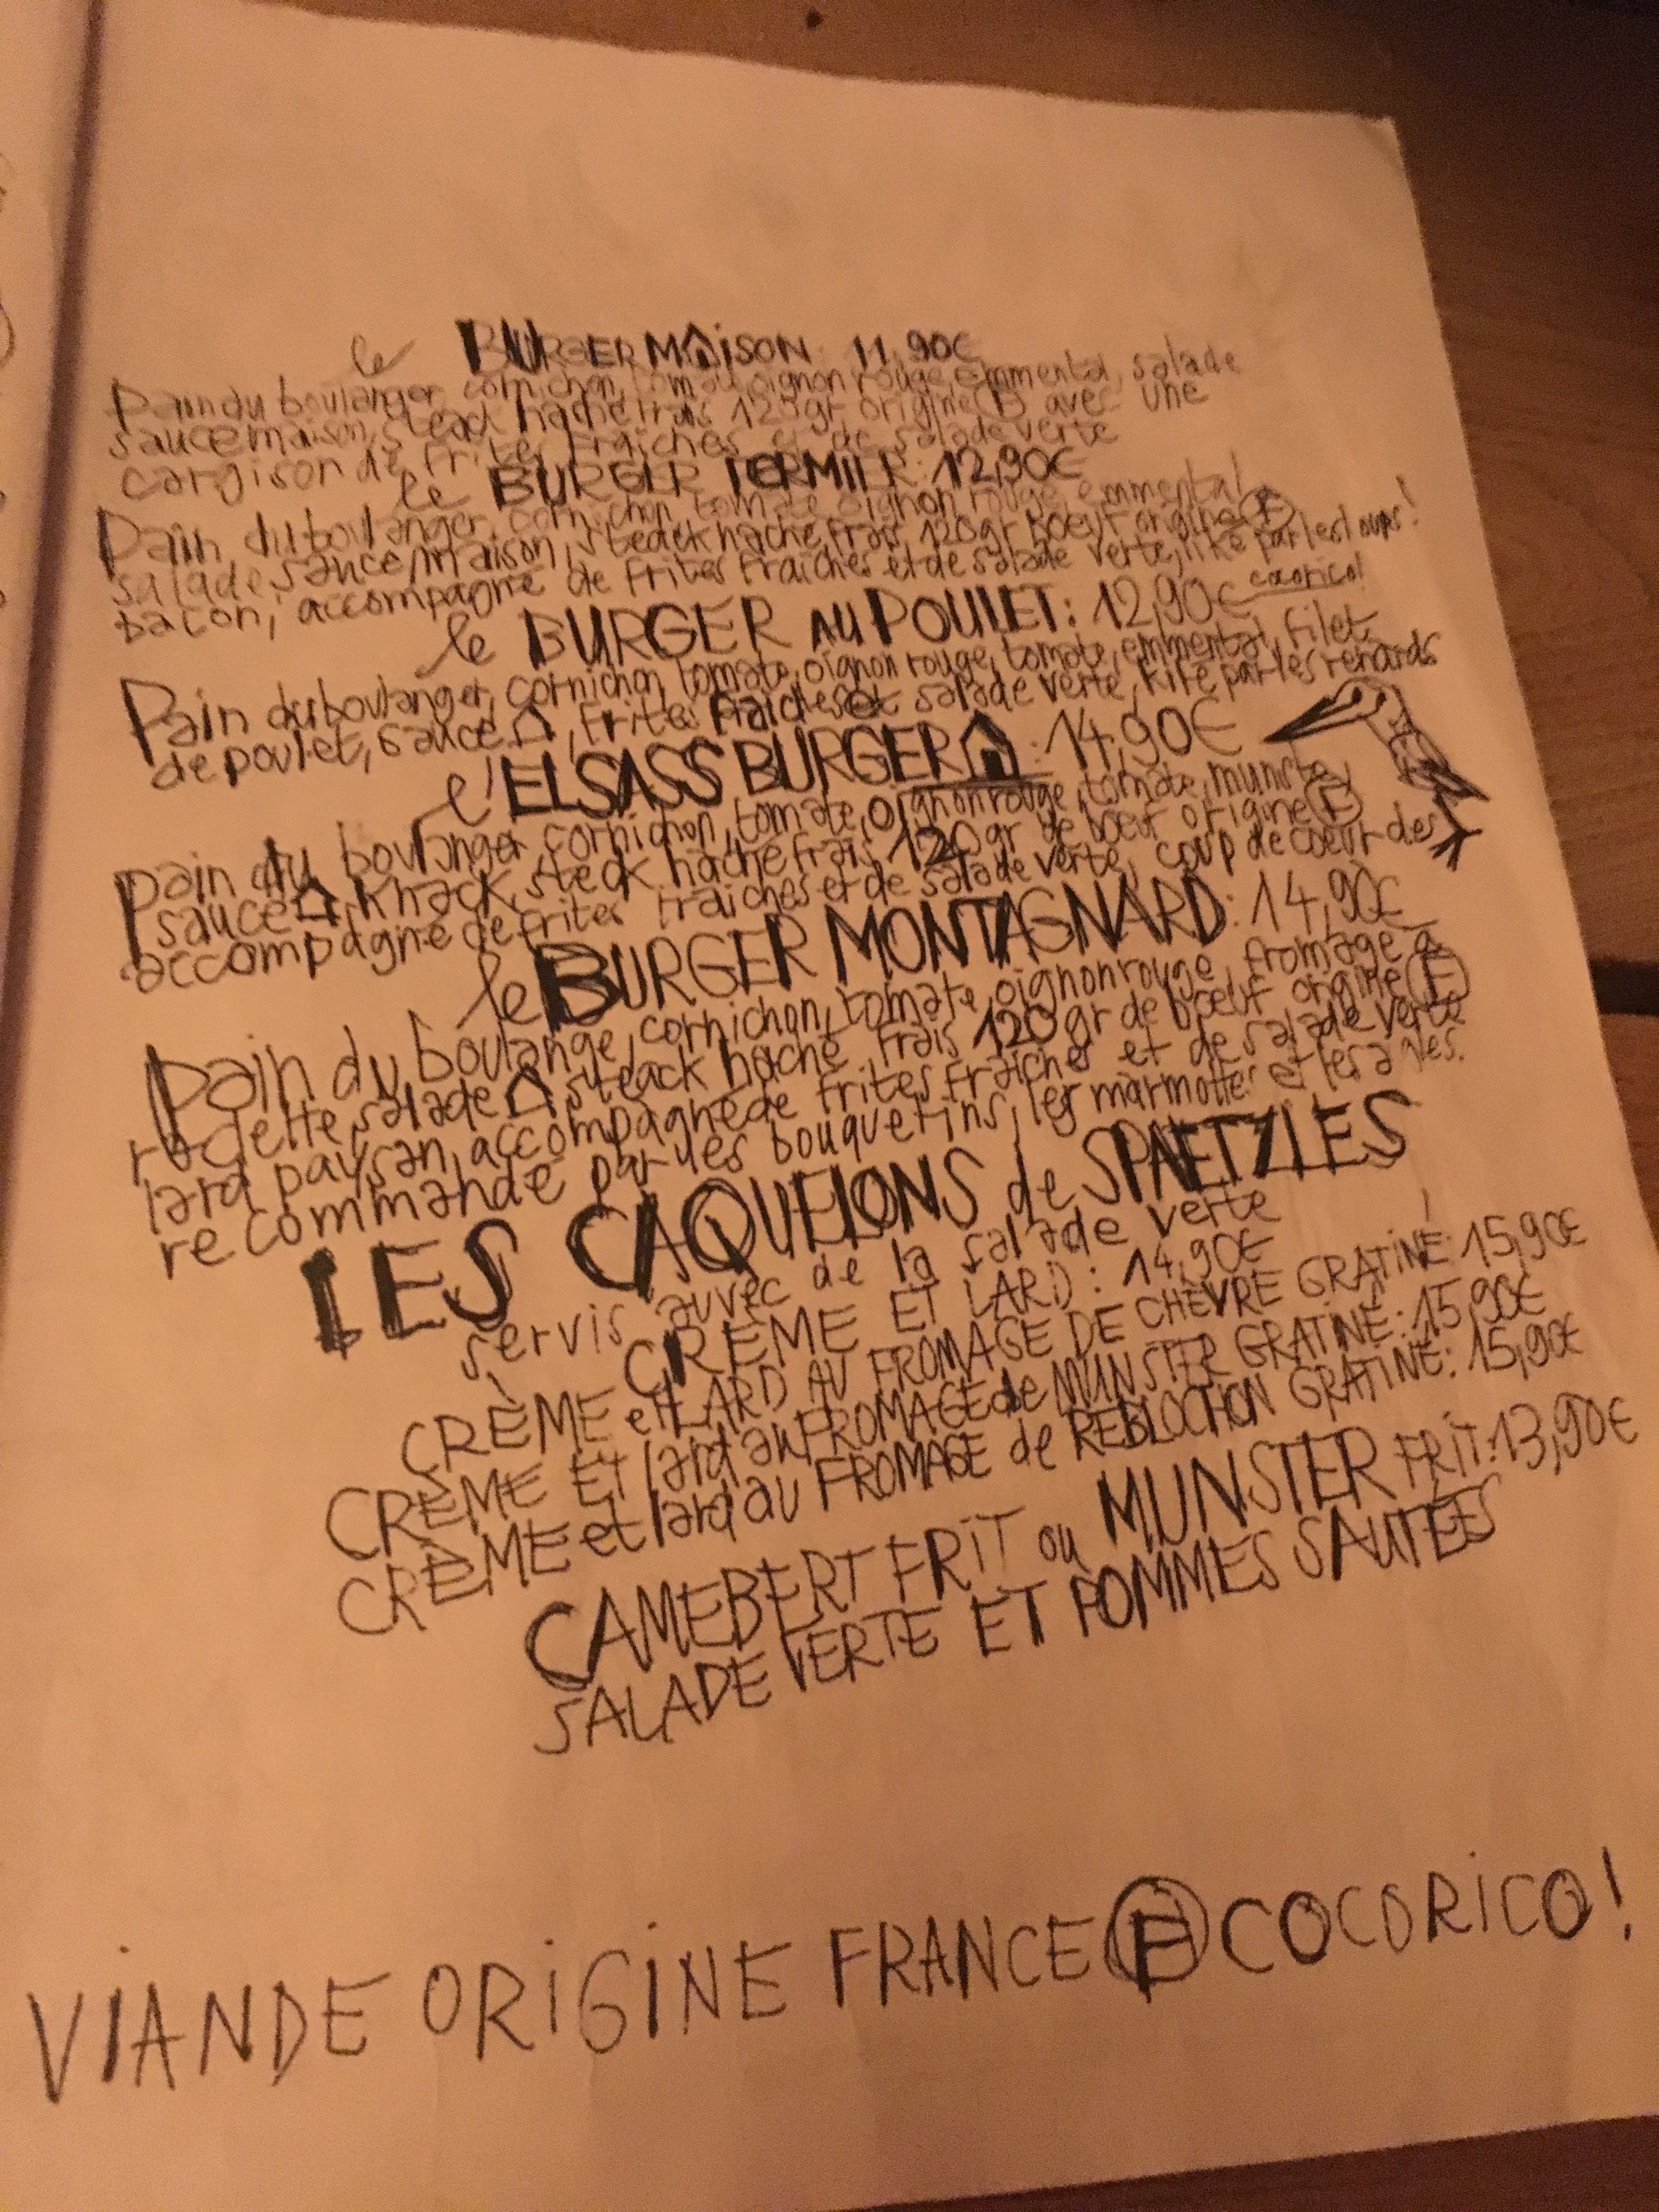 le BURGER MAiSON: 11,90€
Pain du boulanger, cornichon, tomate, oignon rouge, emmental, salade
sauce maison, steack haché frais 120gr origine F avec une
cargaison de frites fraîches et de salade verte
le BURGER FERMIER: 12,90€
Pain du boulanger, cornichon, tomate, oignon rouge, emmental
salade, sauce maison, steack haché frais 120gr boeuf origine F
bacon, accompagné de frites fraîches et de salade verte, liké par les loups!
le BURGER AU POULET: 12,90€ cocorico!
Pain du boulanger, cornichon, tomate, oignon rouge, tomate, emmental, filet
de poulet, sauce, frites fraîches et salade verte, kifé par les renards
l'ELSASS BURGER: 14,90€
pain du boulanger, cornichon, tomate, oignon rouge, tomate, munster,
sauce, knack, steck haché frais 120gr de bœuf origine F
accompagné de frites fraîches et de salade verte, coup de coeur des
le BURGER MONTAGNARD: 14,90€
Pain du boulange, cornichon, tomate, oignon rouge, fromage à
raclette, salade, steack haché frais 120gr de bœuf origine F
lard paysan, accompagné de frites fraîches et de salade verte
recommandé par les bouquetins, les marmottes et les aigles.
LES CAQUELONS de SPAETZLES
servis avec de la salade verte
CRÈME ET LARD: 14,90€
CRÈME et LARD AU FROMAGE DE CHÈVRE GRATINÉ: 15,90€
CRÈME ET lard au FROMAGE de MUNSTER GRATINÉ: 15,90€
CRÈME et lard au FROMAGE de REBLOCHON GRATINÉ: 15,90€
CAMEBERT FRiT ou MUNSTER FRiT: 13,90€
SALADE VERTE ET POMMES SAUTÉES
ViANDE ORiGiNE FRANCE F COCORiCO!